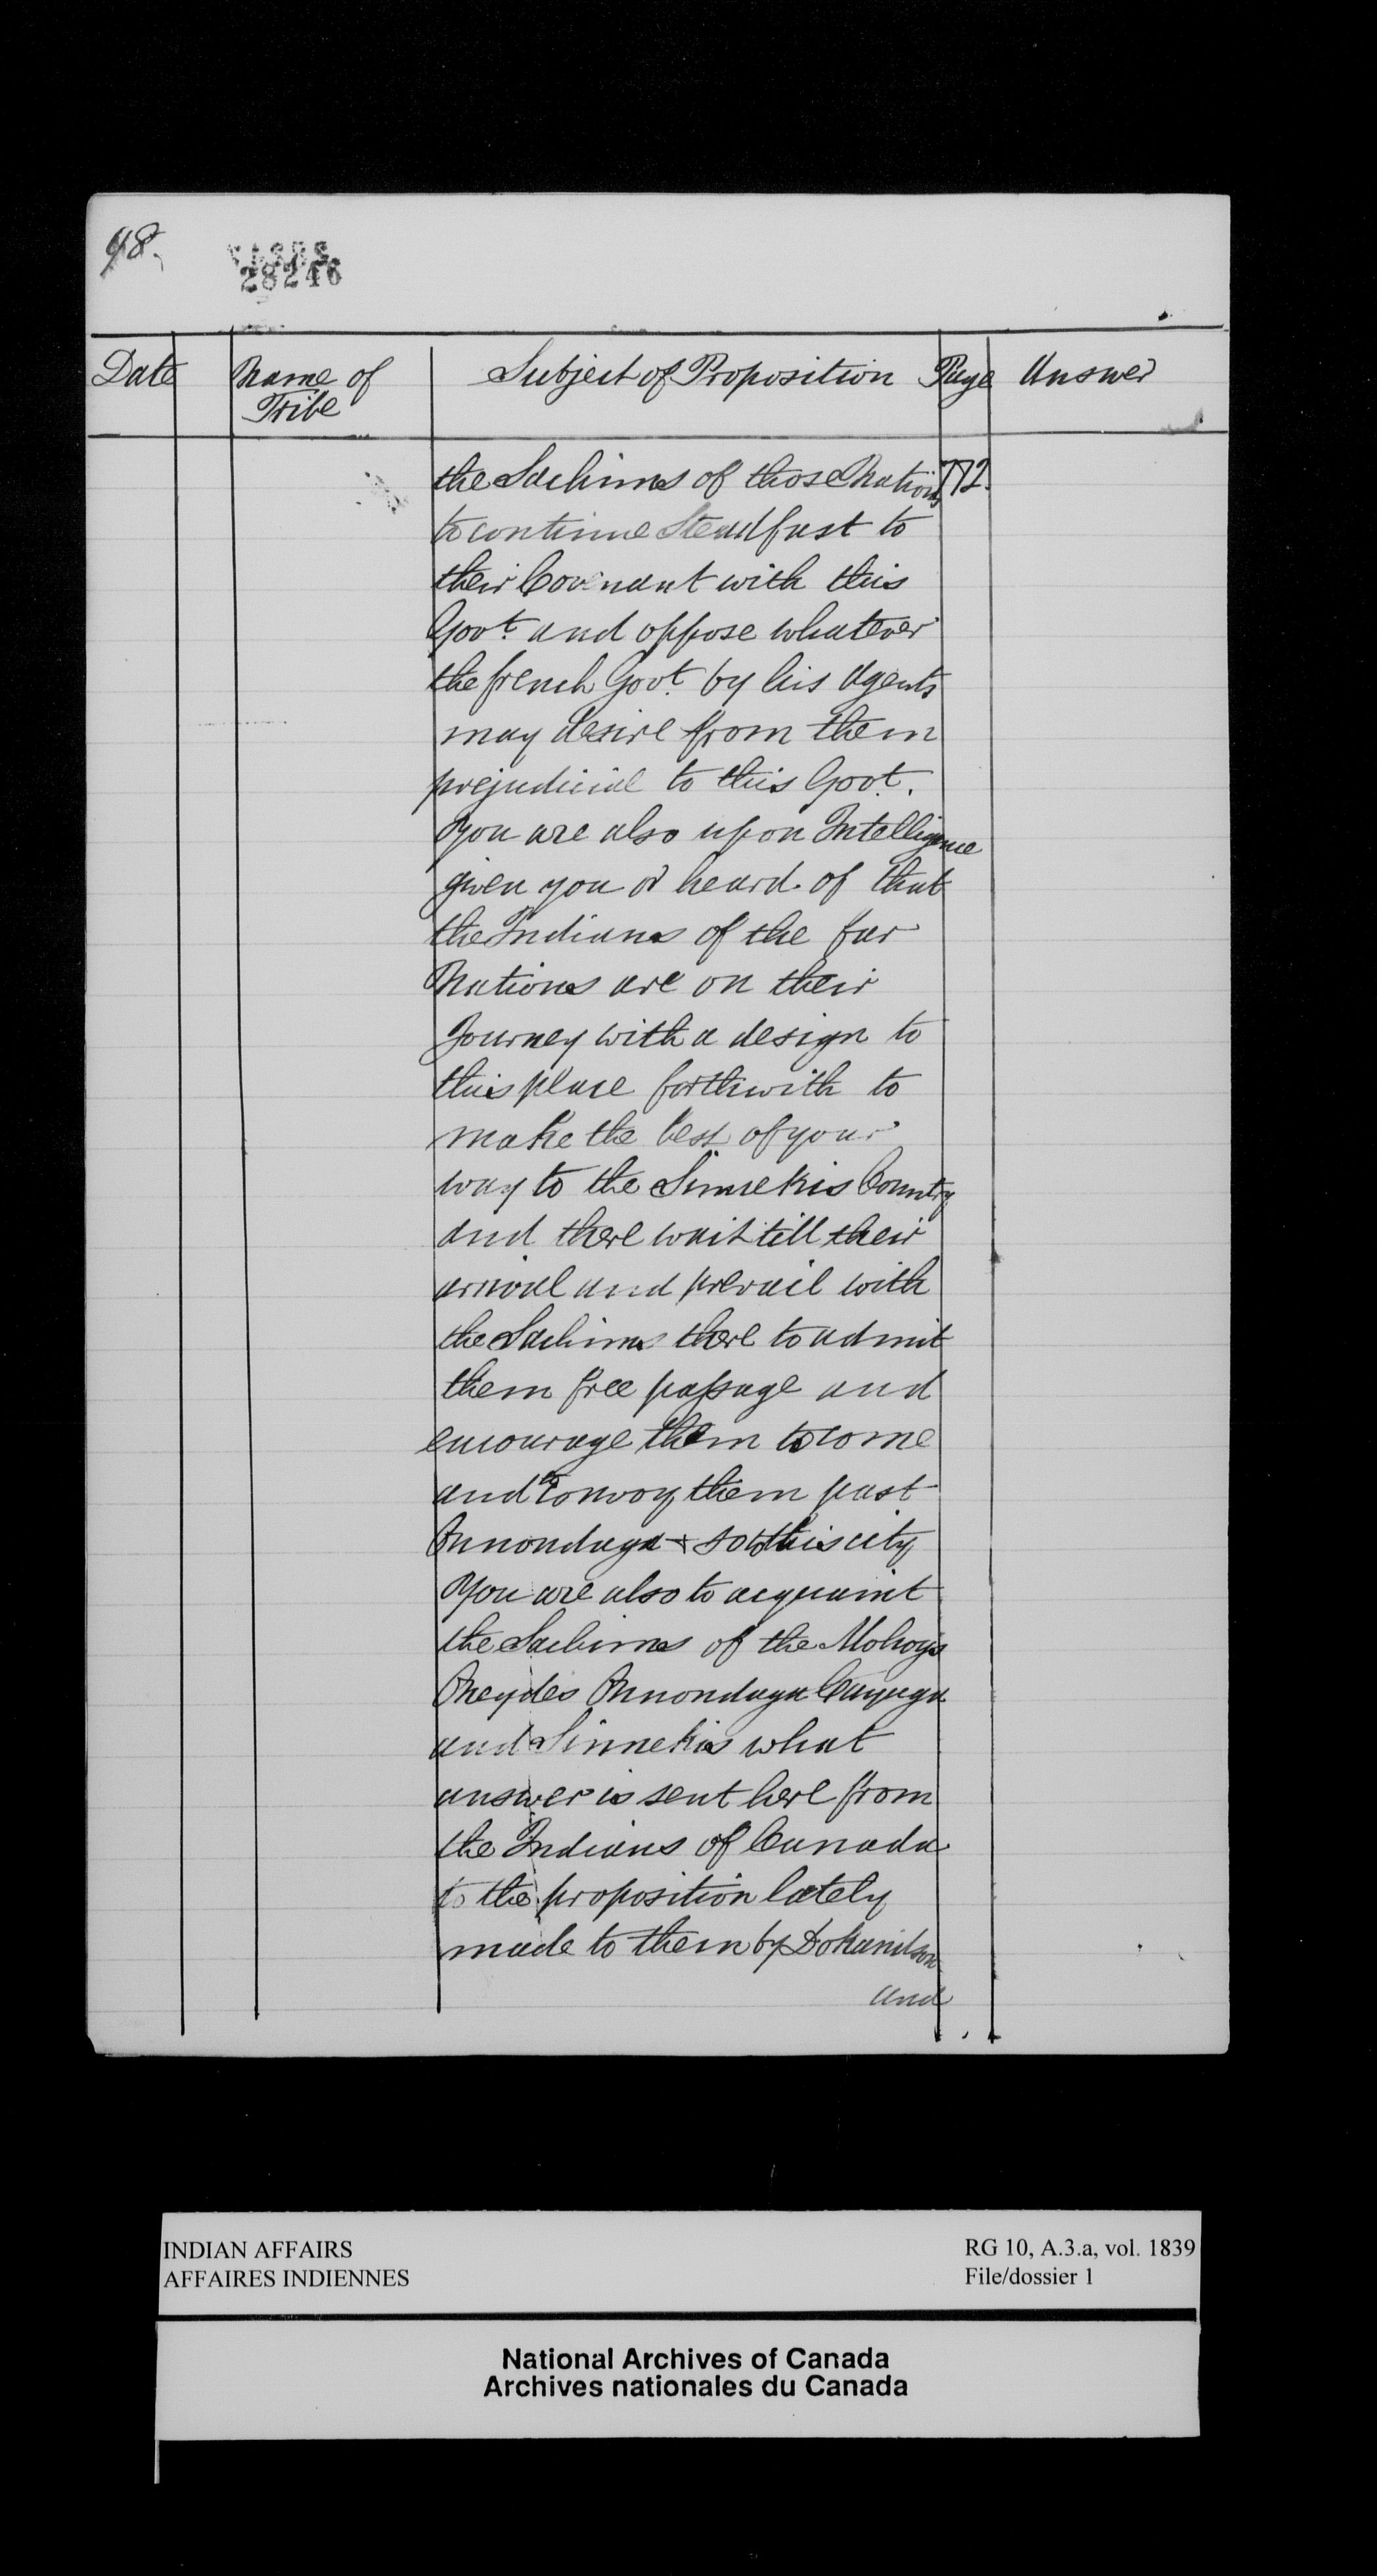 98.
28246
Date Name of Tribe Subject of Proposition Page Answer
the Sachims of those Nations 172.
to continue Steadfast to
their Covenant with this
Govt. and oppose whatever
the french Govt. by his Agents
may desire from them
prejudicial to this Govt.
You are also upon Intelligence
given you or heard of that
the Indians of the far
Nations are on their
Journey with a design to
this place forthwith to
make the best of your
way to the Sinnekis Country
and there wait till their
arrival and prevail with
the Sachims there to admit
them free passage and
encourage them to come
and to convoy them past
Onnondaga & so to this city
You are also to acquaint
the Sachims of the Mohogs
Oneydes Onnondaga Cayuga
and Sinnekis what
answer is sent here from
the Indians of Canada
to the proposition lately
made to them by
and
INDIAN AFFAIRS RG 10, A.3.a, vol. 1839
AFFAIRES INDIENNES File/dossier 1
National Archives of Canada
Archives nationales du Canada